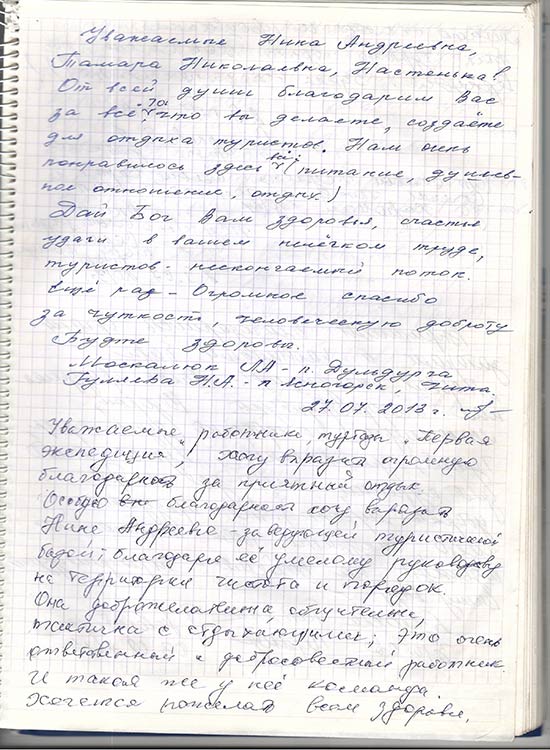 Уважаемые Нина Андреевна,
Тамара Николаевна, Настенька!
От всей души благодарим Вас
за всё то, что вы делаете, создаёте
для отдыха туристов. Нам очень
понравилось здесь всё (питание, душев-
ное отношение, отдых.)
Дай Бог Вам здоровья, счастья
удачи в вашем нелёгком труде,
туристов - нескончаемый поток.
Ещё раз - Огромное спасибо
за чуткость, человеческую доброту
Будте здоровы.
Москалюк ЛА - п. Дульдурга
Гуляева Н.А. - п Ясногорск, Чита.
27.07.2013 г.
Уважаемые работники турбазы „Первая
экспедиция", хочу выразить огромную
благодарность за приятный отдых.
Особую благодарность хочу выразить
Нине Андреевне - заведующей туристической
базой; благодаря её умелому руководству
на территории чистота и порядок.
Она доброжелательна, общительна,
тактична с отдыхающимися; Это очень
ответственный и добросовестный работник.
И такая же у неё команда.
Хочется пожелать всем здоровья,